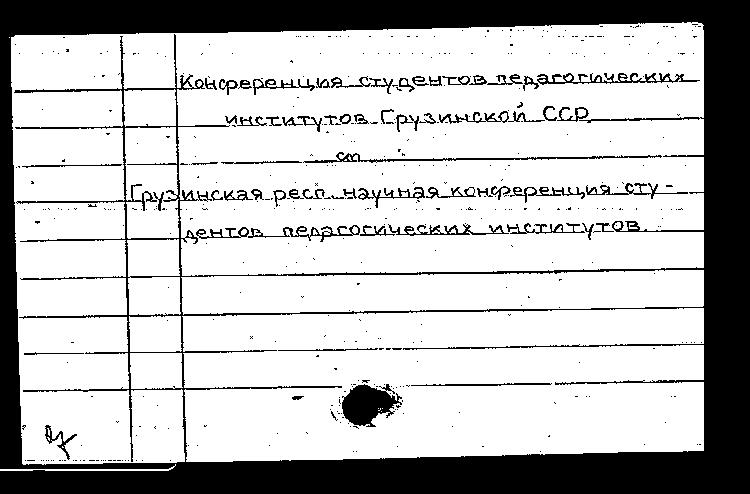 Конференция студентов педагогических
институтов Грузинской ССР
см
Грузинская респ. научная конференция сту-
дентов педагогических институтов.